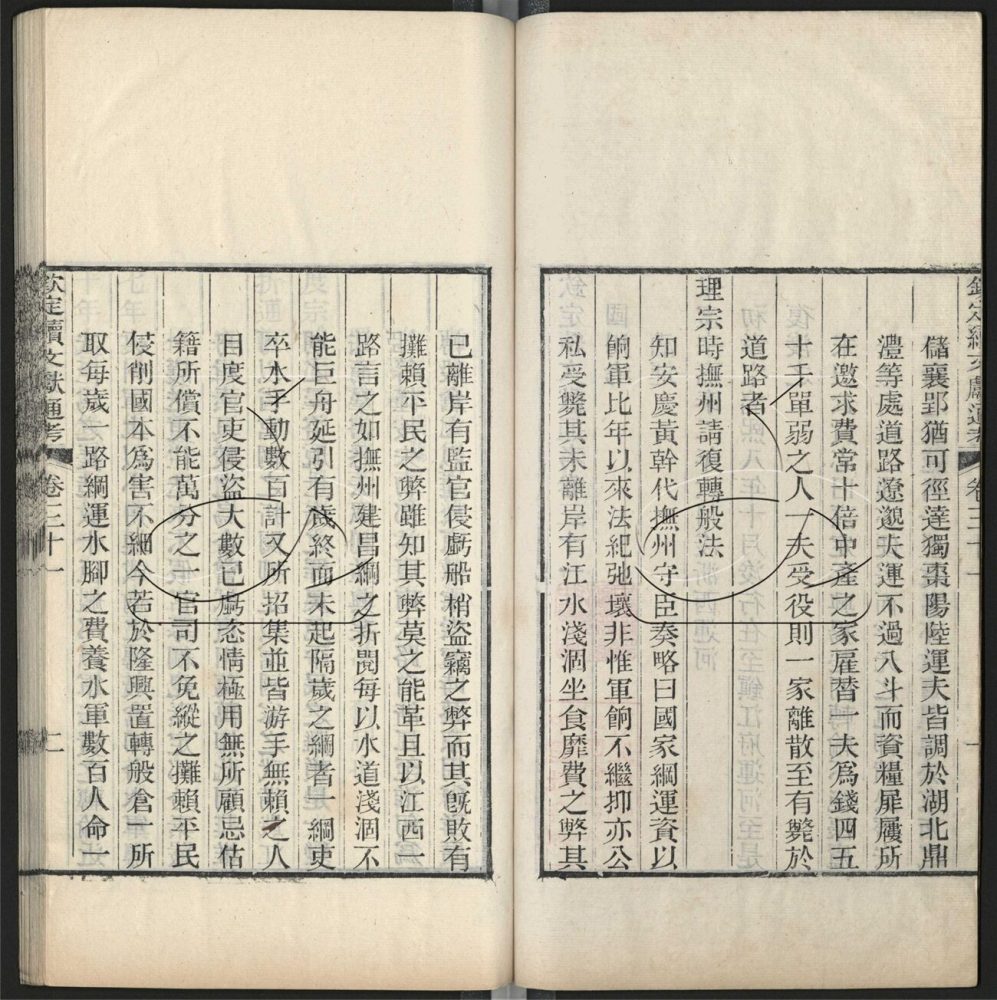 欽定續文獻通考 卷三十一 一
儲襄郢猶可徑達獨棗陽陸運夫皆調於湖北鼎
澧等處道路遼邈夫運不過八斗而資糧屝屨所
在邀求費常十倍中產之家雇替一夫為錢四五
十千單弱之人一夫受役則一家離散至有斃於
道路者
理宗時撫州請復轉般法
知安慶黃幹代撫州守臣奏略曰國家綱運資以
餉軍比年以來法紀弛壞非惟軍餉不繼抑亦公
私受斃其未離岸有江水淺涸坐食靡費之弊其
已離岸有監官侵虧船梢盜竊之弊而其旣敗有
攤賴平民之弊雖知其弊莫之能革且以江西一
路言之如撫州建昌綱之折閱每以水道淺涸不
能巨舟延引有歲終而未起隔歲之綱者一綱吏
卒水手動數百計又所招集並皆游手無賴之人
目度官吏侵盜大數已虧恣情極用無所顧忌估
籍所償不能萬分之一官司不免縱之攤賴平民
侵削國本爲害不細今若於隆興置轉般倉一所
取每歲一路綱運水腳之費養水軍數百人命一
欽定續文獻通考 卷三十一 二